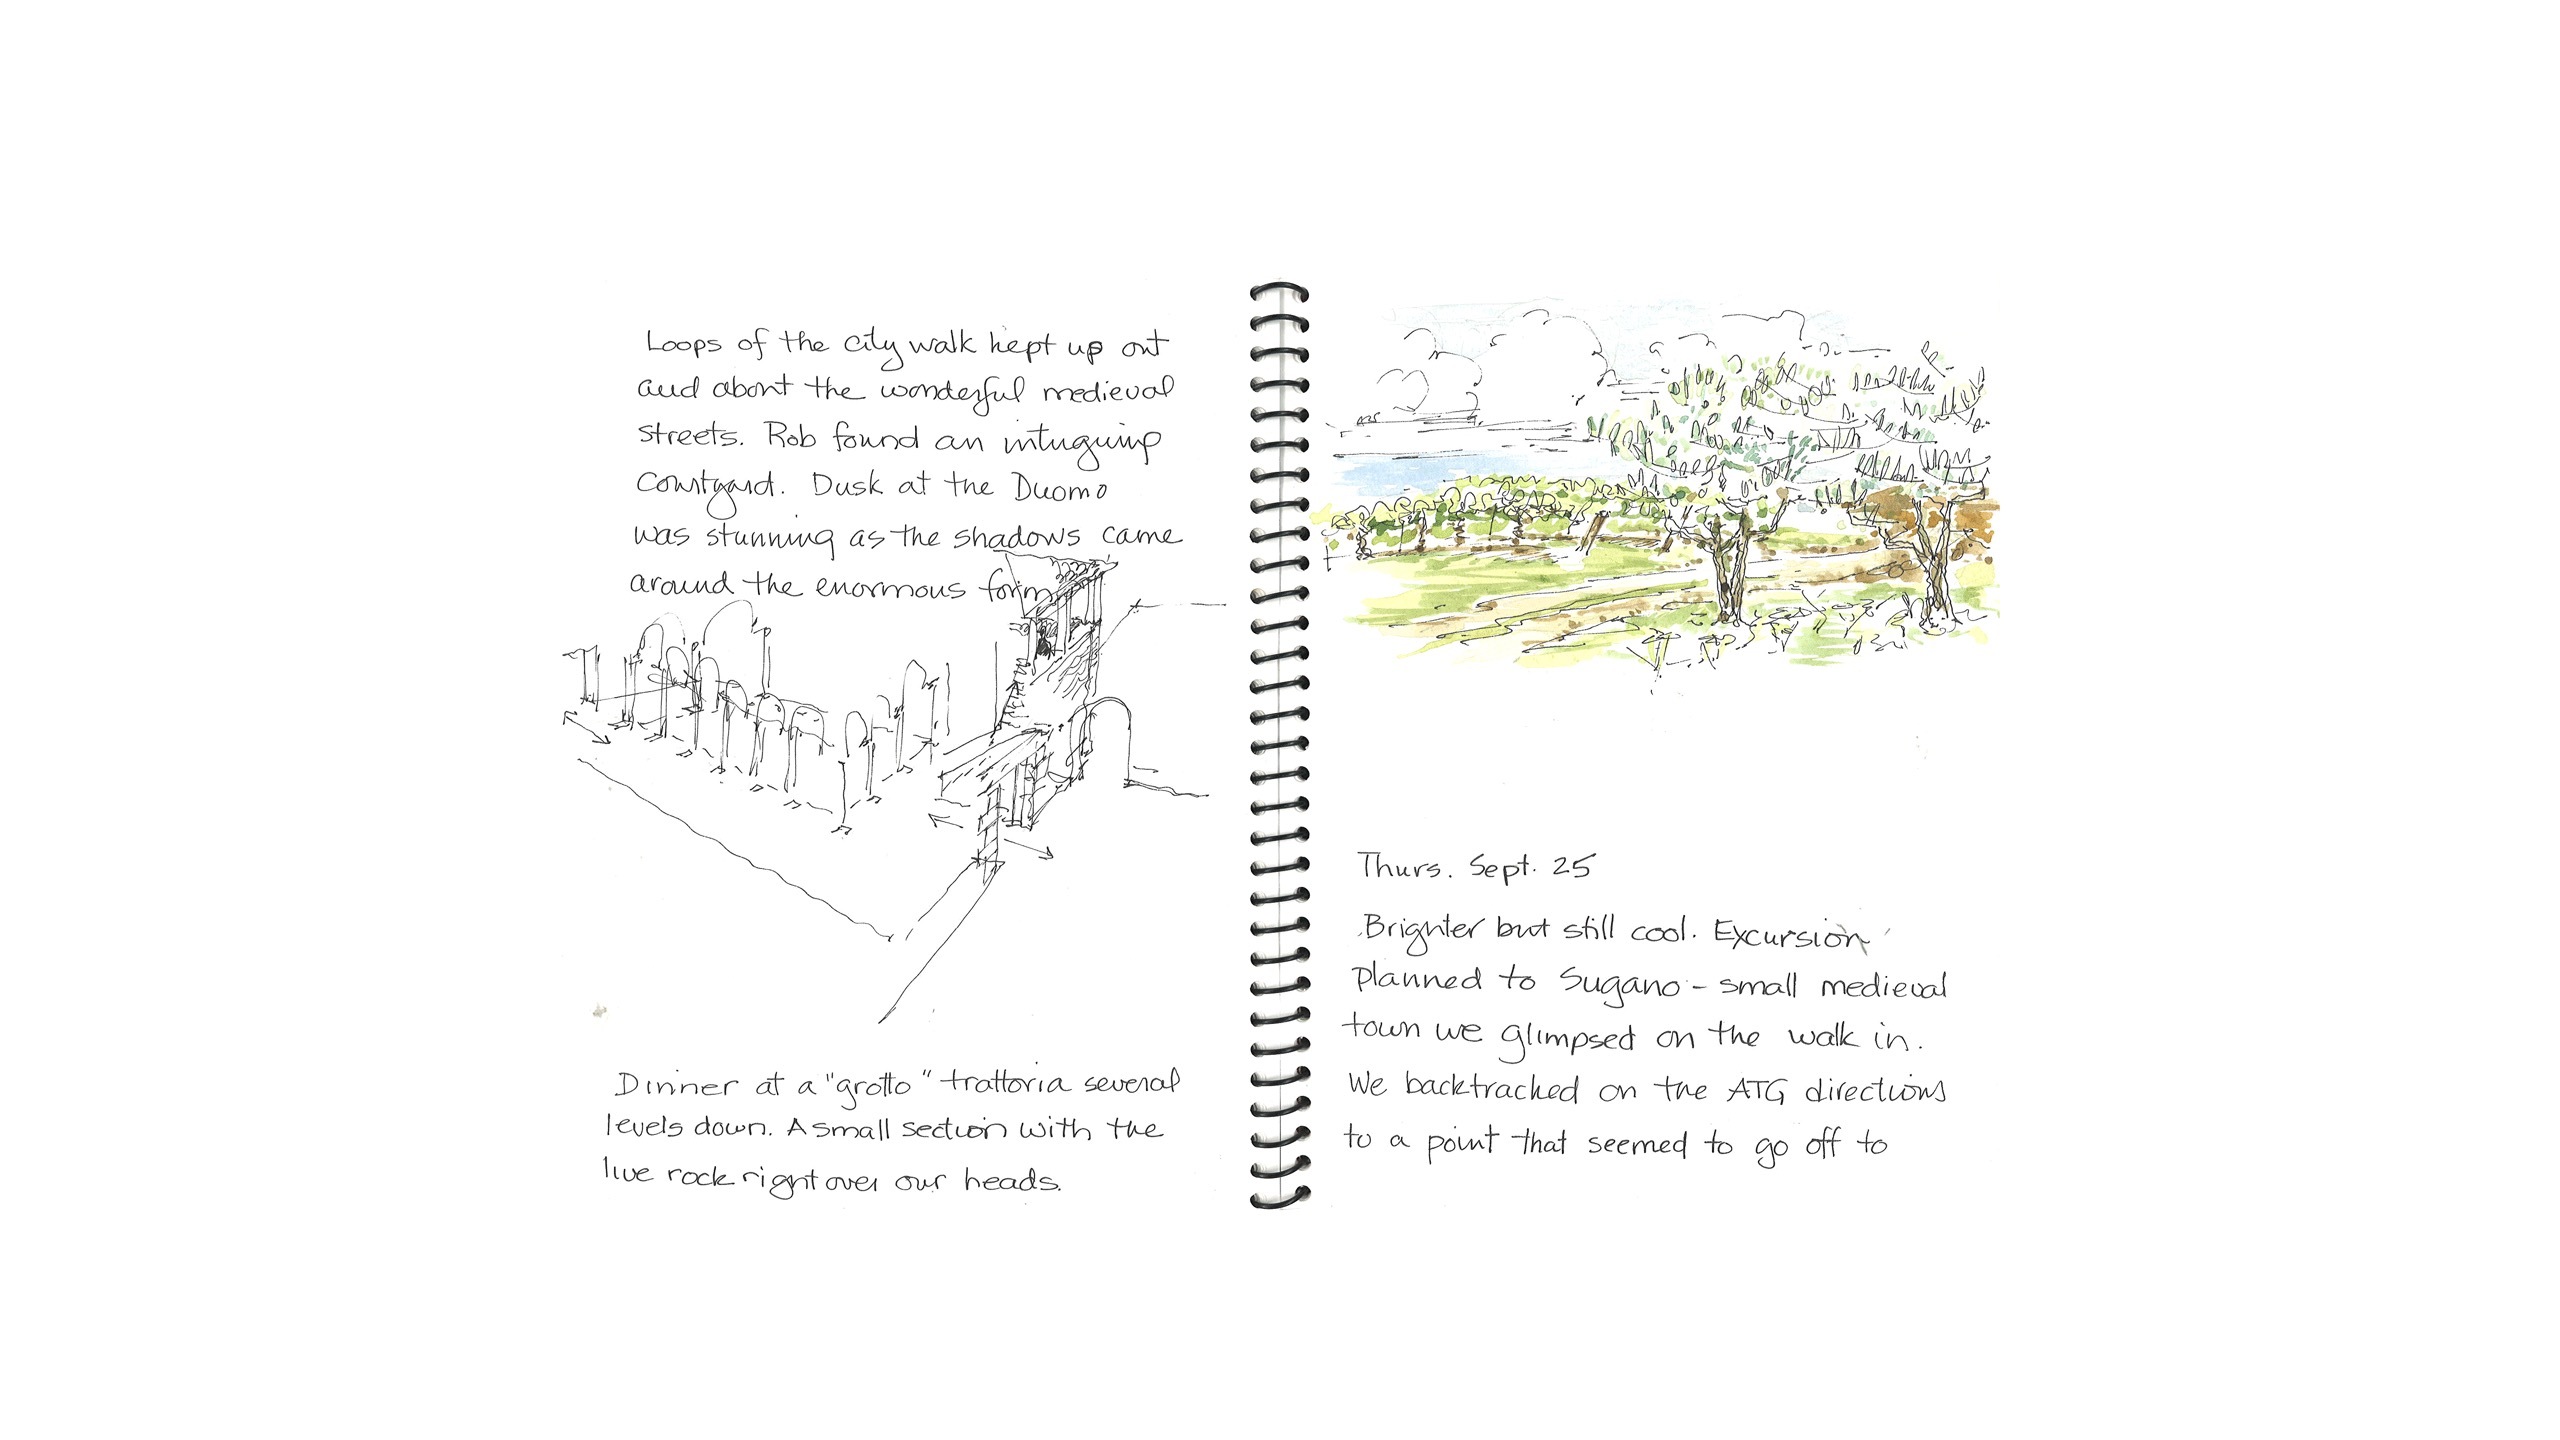 Loops of the city walk kept up out
and about the wonderful medieval
streets. Rob found an intriguing
courtyard. Dusk at the Duomo
was stunning as the shadows came
around the enormous form
Dinner at a "grotto" trattoria several
levels down. A small section with the
live rock right over our heads.
Thurs. Sept. 25
Brighter but still cool. Excursion
planned to Sugano - small medieval
town we glimpsed on the walk in.
We backtracked on the ATG directions
to a point that seemed to go off to